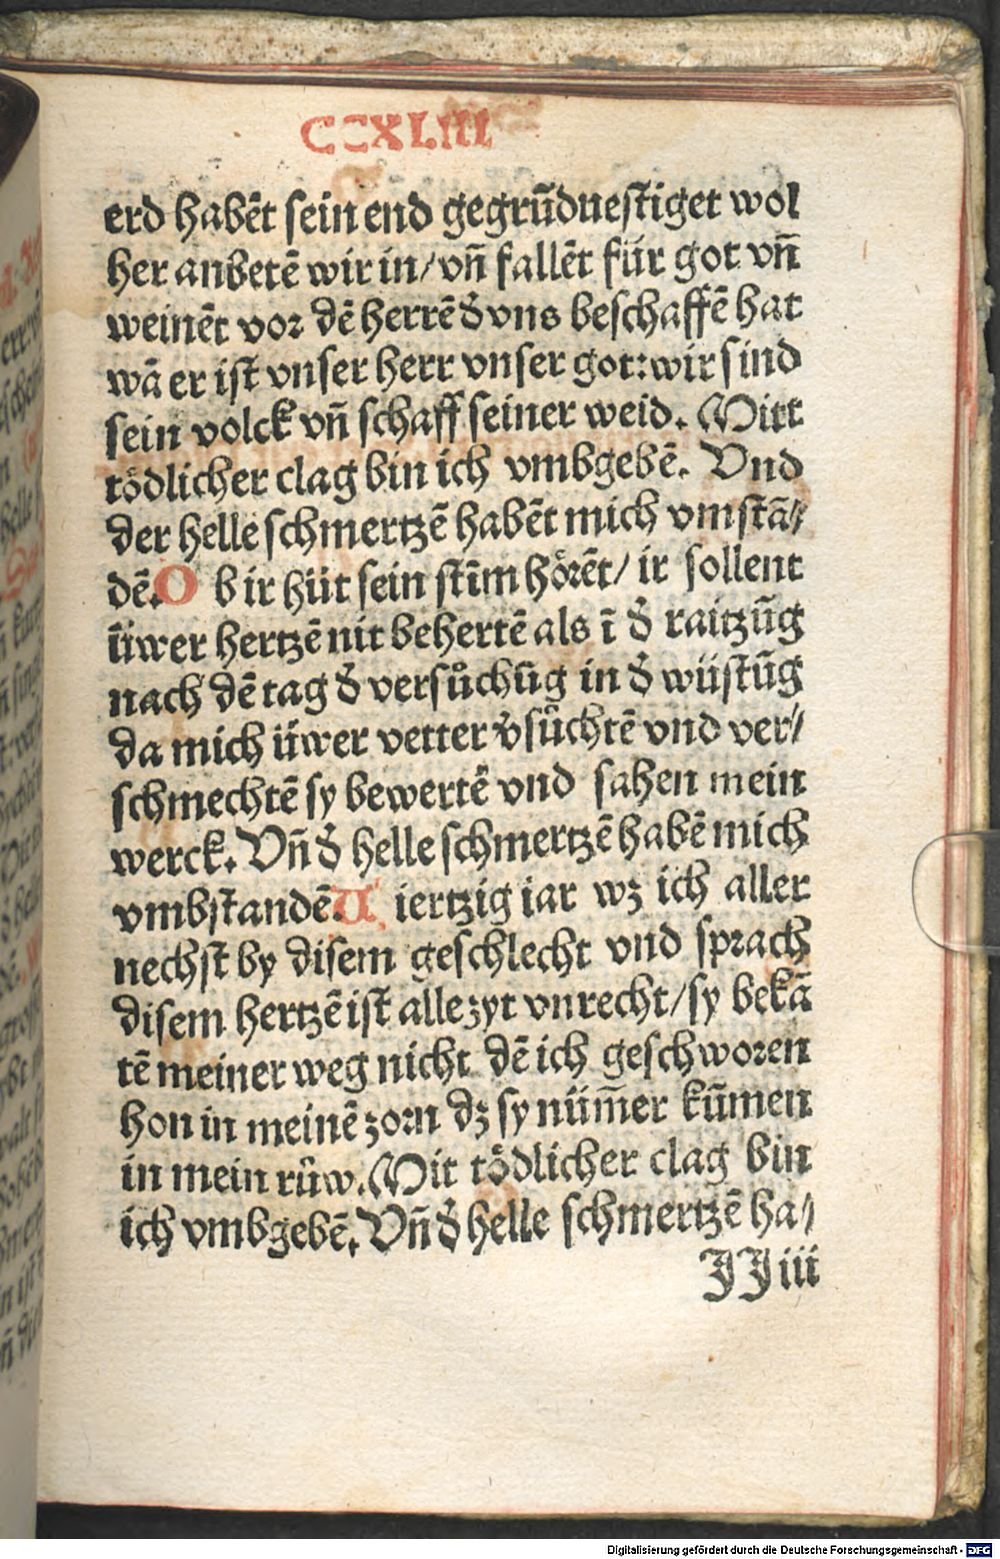 CCXLIII
erd habẽt sein end gegrũduestiget wol
her anbetẽ wir in/vñ fallẽt für got vñ
weinẽt vor dẽ herrẽ d̕ vns beschaffẽ hat
wã er ist vnser herr vnser got: wir sind
sein volck vñ schaff seiner weid. Mitt
tödlicher clag bin ich vmbgebẽ. Vnd
der helle schmertzẽ habẽt mich vmstã/
dẽ. O b ir hüt sein stĩm hörẽt/ ir sollent
üwer hertzẽ nit behertẽ als ĩ d̕ raitzũg
nach dẽ tag d̕ versůchũg in d̕ wüstũg
da mich üwer vetter v̕sůchtẽ vnd ver/
schmechtẽ sy bewertẽ vnd sahen mein
werck. Vñ d̕ helle schmertzẽ habẽ mich
vmbstandẽ. V iertzig iar wz ich aller
nechst by disem geschlecht vnd sprach
disem hertzẽ ist alle zyt vnrecht/sy bekã
tẽ meiner weg nicht dẽ ich geschworen
hon in meinẽ zorn dz sy nüm̃er kũmen
in mein růw. Mit tödlicher clag bin
ich vmbgebẽ. Vñ d̕ helle schmertzẽ ha/
JJ iii
Digitalisierung gefördert durch die Deutsche Forschungsgemeinschaft - DFG